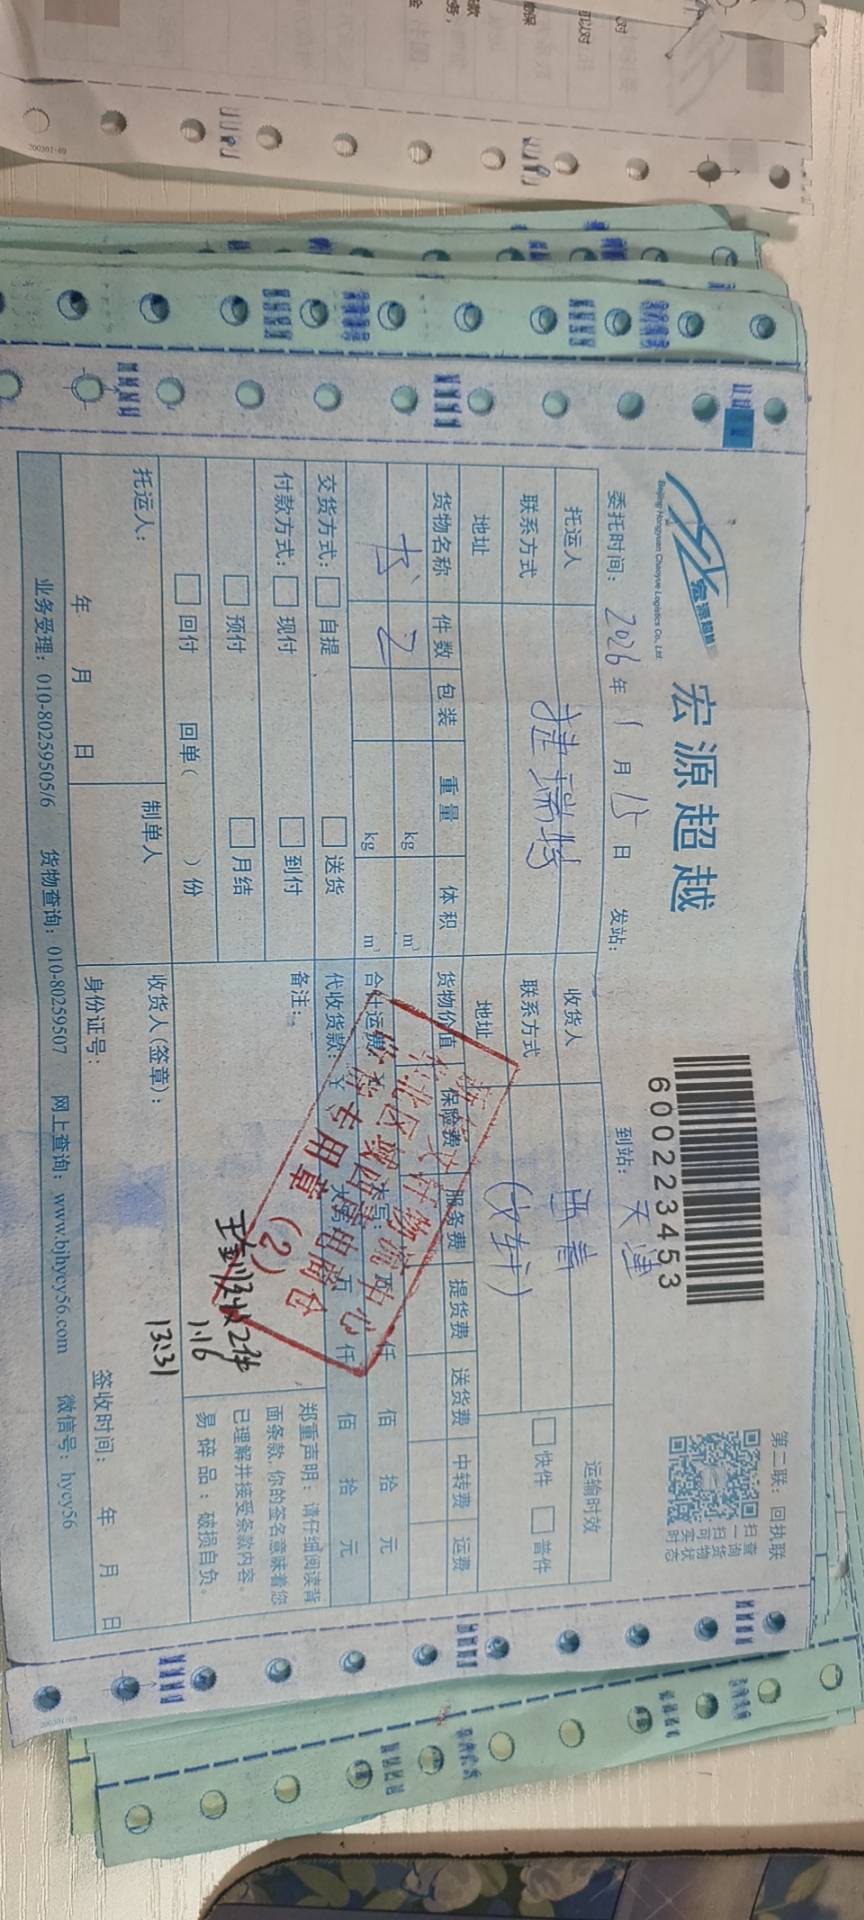 宏源超越
Beijing Hongyuan Chaoyue Logistics Co., Ltd.
宏源超越
600223453
第二联：回执联
扫一扫可实时
查询货物状态
委托时间：2026年1月15日 发站： 到站：天津
托运人 收货人 运输时效
联系方式 捷瑞特 联系方式 快件 普件
地址 地址 （文轩）
货物名称 件数 包装 重量 体积 货物价值 保险费 服务费 提货费 送货费 中转费 运费
书 2 kg m³
kg m³ 合计运费 大写： 仟 佰 拾 元
交货方式： 自提 送货 代收货款：￥ 大写 万 仟 佰 拾 元
付款方式： 现付 到付 备注：
预付 月结
回付 回单（ ）份
专用章（2）
收2件
1.16
13:31
郑重声明：请仔细阅读背
面条款，你的签名意味着您
已理解并接受条款内容。
易碎品：破损自负。
托运人： 制单人 收货人(签章)：
年 月 日 身份证号： 签收时间： 年 月 日
业务受理：010-80259505/6 货物查询：010-80259507 网上查询：www.bjhycy56.com 微信号：hycy56